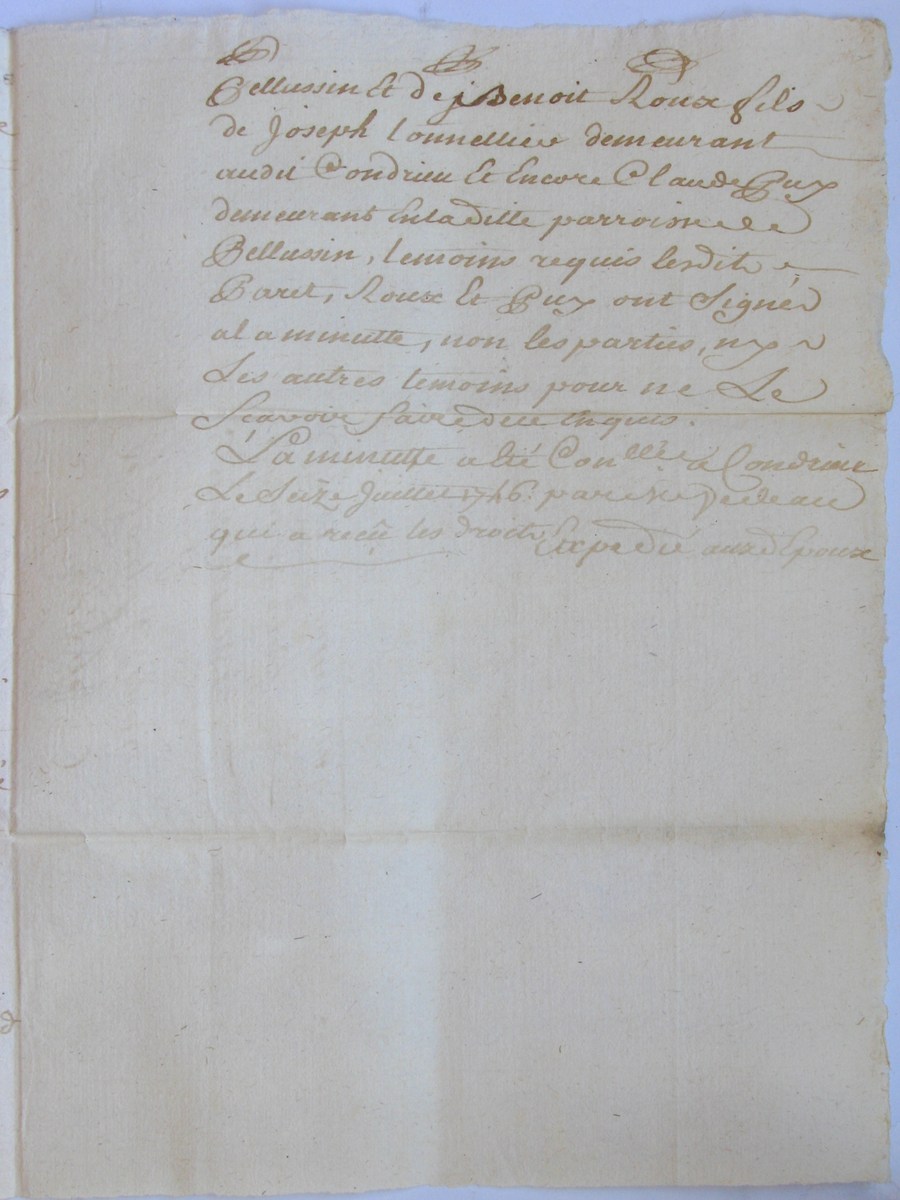 Pellussin Et de Benoit Roux fils
de Joseph tonnellier demeurant
audit Condrieu Et Encore Claude Puy
demeurant Enladitte parroisse de
Pellussin, temoins requis lesdits
Paret, Roux Et Puy ont Signés
a la minutte, non les parties, ny
Les autres temoins pour ne Le
Sçavoir faire de ce Enquis.
La minutte a eté Con.llée à Condrieu
Le Seize Juillet 1746. par
qui a reçu les droits Expedié auxd Epoux